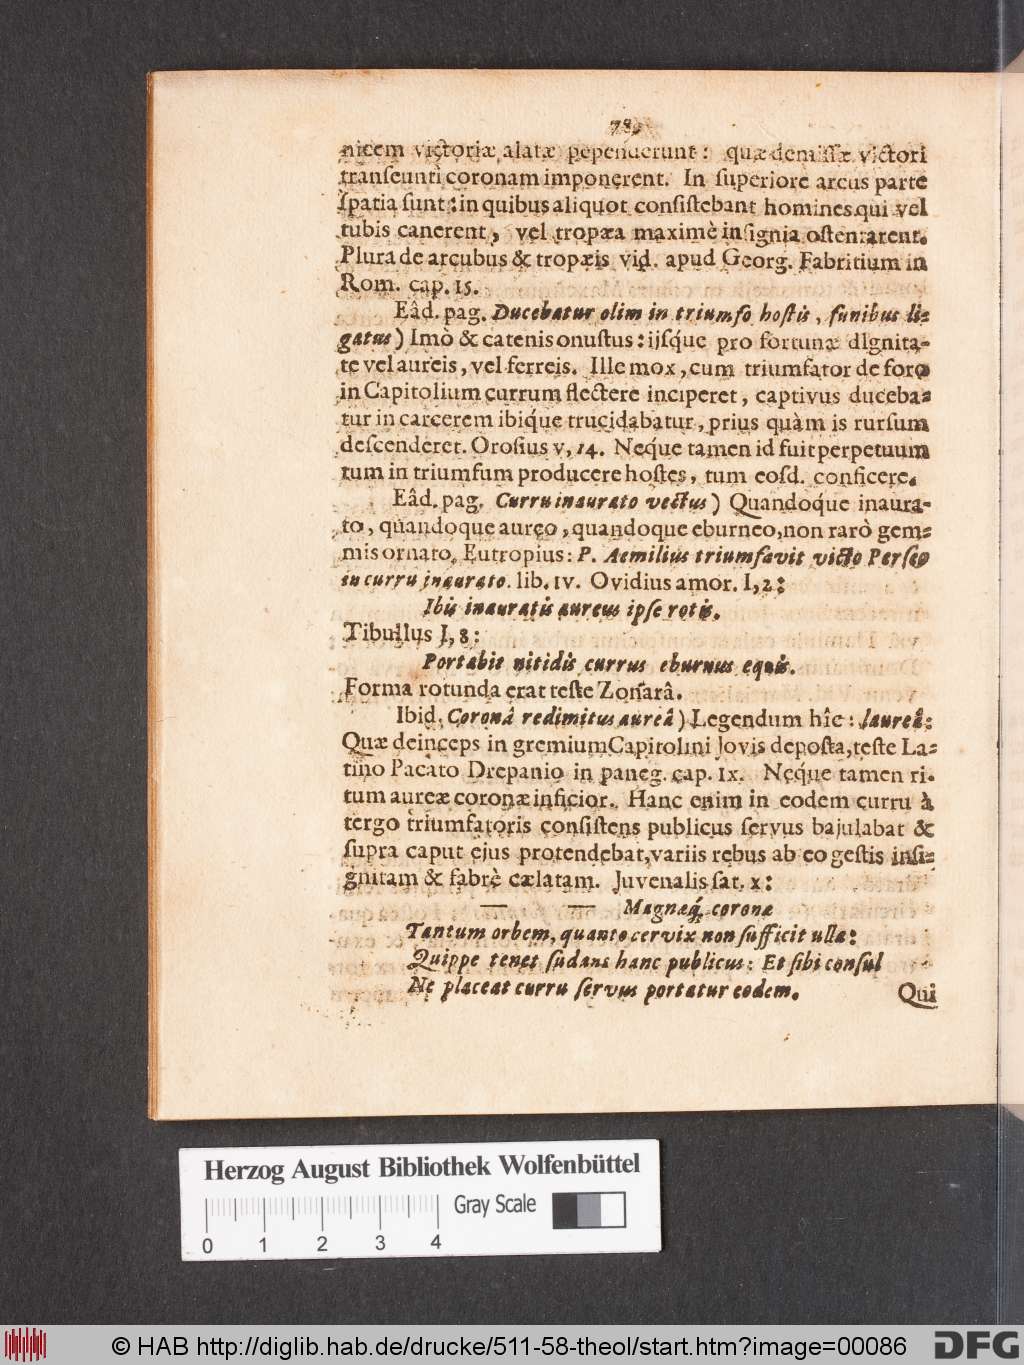 78.
nicem victoriæ alatæ pependerunt: quæ demissæ victori
transeunti coronam imponerent. In superiore arcus parte
spatia sunt: in quibus aliquot consistebant homines qui vel
tubis canerent, vel tropæa maximè insignia ostentarent.
Plura de arcubus & tropæis vid. apud Georg. Fabritium in
Rom. cap. 15.
Eâd. pag. Ducebatur olim in triumfo hostis, funibus li-
gatus) Imò & catenis onustus: iisq́ue pro fortunæ dIgnita-
te vel aureis, vel ferreis. Ille mox, cum triumfator de foro
in Capitolium currum flectere inciperet, captivus duceba-
tur in carcerem ibiq́ue trucidabatur, prius quàm is rursum
descenderet. Orosius v, 14. Neque tamen id fuit perpetuum
tum in triumfum producere hostes, tum eosd. conficere.
Eâd. pag. Curru inaurato vectus) Quandoq́ue inaura-
to, quandoque aureo, quandoque eburneo, non rarò gem-
mis ornato. Eutropius: P. Aemilius triumfavit victo Perseo
in curru inaurato. lib. IV. Ovidius amor. I, 2:
Ibis inauratis aureus ipse rotis.
Tibullus I, 8:
Portabit nitidis currus eburnus equis.
Forma rotunda erat teste Zonarâ.
Ibid. Coronâ redimitus aureâ) Legendum hîc: laureâ:
Quæ deinceps in gremium Capitolini Jovis deposta, teste La-
tino Pacato Drepanio in paneg. cap. IX. Neque tamen ri-
tum aureæ coronæ inficior. Hanc enim in eodem curru à
tergo triumfatoris consistens publicus servus bajulabat &
supra caput ejus protendebat, variis rebus ab eo gestis insi-
gnitam & fabrè cælatam. Juvenalis sat. x:
— — Magnæq́; coronæ
Tantum orbem, quanto cervix non sufficit ulla:
Quippe tenet sudans hanc publicus: Et sibi consul
Ne placeat curru servus portatur eodem.
Qui
Herzog August Bibliothek Wolfenbüttel
Gray Scale
0 1 2 3 4
© HAB http://diglib.hab.de/drucke/511-58-theol/start.htm?image=00086
DFG